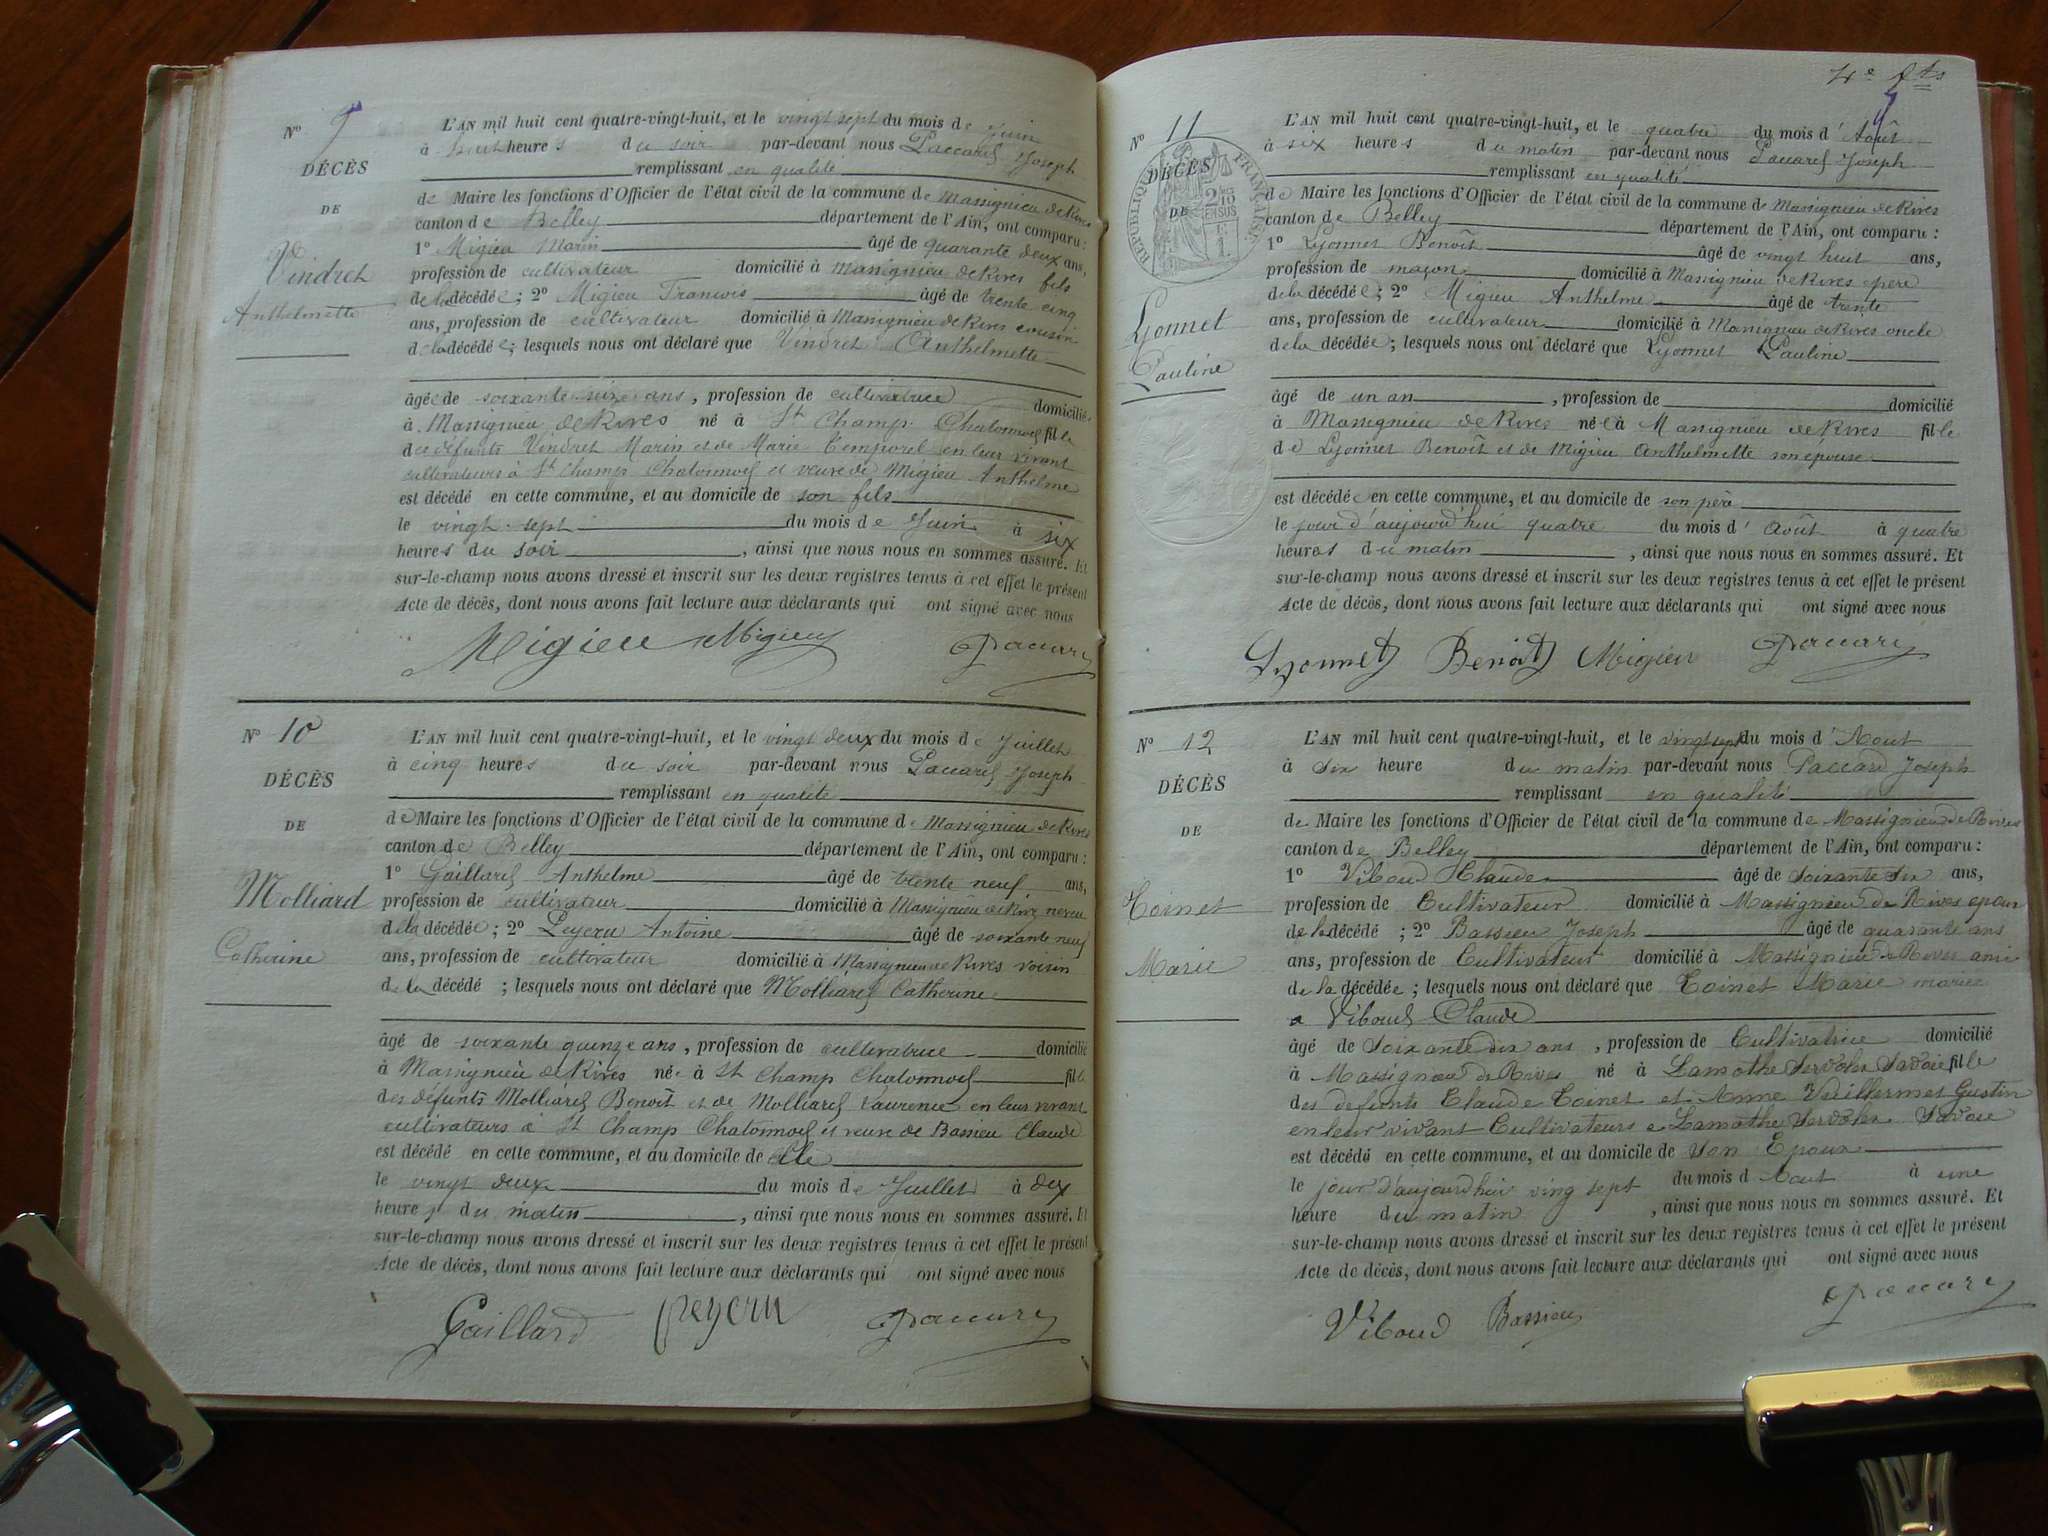 N° 9
DÉCÈS
DE
Vindret
Anthelmette
L'AN mil huit cent quatre-vingt-huit, et le vingt sept du mois de Juin
à huit heures du soir par-devant nous Paccard Joseph
remplissant en qualité
de Maire les fonctions d'Officier de l'état civil de la commune de Massignieu de Rives
canton de Belley département de l'Ain, ont comparu :
1° Migieu Marin âgé de quarante deux ans,
profession de cultivateur domicilié à Massignieu de Rives fils
de la décédée ; 2° Migieu Francois âgé de trente cinq
ans, profession de cultivateur domicilié à Massignieu de Rives cousin
de la décédée ; lesquels nous ont déclaré que Vindret Anthelmette
âgée de soixante seize ans, profession de cultivatrice domiciliée
à Massignieu de Rives né à St Champ Chatonnod fille
des défunts Vindret Marin et de Marie Temporel en leur vivant
cultivateurs à St Champ Chatonnod et veuve de Migieu Anthelme
est décédé en cette commune, et au domicile de son fils
le vingt sept du mois de Juin à six
heures du soir, ainsi que nous nous en sommes assuré. Et
sur-le-champ nous avons dressé et inscrit sur les deux registres tenus à cet effet le présent
Acte de décès, dont nous avons fait lecture aux déclarants qui ont signé avec nous
Migieu Migieu Paccard
N° 10
DÉCÈS
DE
Molliard
Catherine
L'AN mil huit cent quatre-vingt-huit, et le vingt deux du mois de Juillet
à cinq heures du soir par-devant nous Paccard Joseph
remplissant en qualité
de Maire les fonctions d'Officier de l'état civil de la commune de Massignieu de Rives
canton de Belley département de l'Ain, ont comparu :
1° Gaillard Anthelme âgé de trente neuf ans,
profession de cultivateur domicilié à Massignieu de Rives neveu
de la décédée ; 2° Peyern Antoine âgé de soixante neuf
ans, profession de cultivateur domicilié à Massignieu de Rives voisin
de la décédé ; lesquels nous ont déclaré que Molliard Catherine
âgé de soixante quinze ans, profession de cultivatrice domicilié
à Massignieu de Rives née à St Champ Chatonnod fille
des défunts Molliard Benoît et de Molliard Laurence en leur vivant
cultivateurs à St Champ Chatonnod et veuve de Bassieu Claude
est décédé en cette commune, et au domicile de elle
le vingt deux du mois de Juillet à deux
heures du matin, ainsi que nous nous en sommes assuré. Et
sur-le-champ nous avons dressé et inscrit sur les deux registres tenus à cet effet le présent
Acte de décès, dont nous avons fait lecture aux déclarants qui ont signé avec nous
Gaillard Peyern Paccard
N° 11
DÉCÈS
DE
RÉPUBLIQUE FRANÇAISE
Lyonnet
Pauline
L'AN mil huit cent quatre-vingt-huit, et le quatre du mois d'Août
à six heures du matin par-devant nous Paccard Joseph
remplissant en qualité
de Maire les fonctions d'Officier de l'état civil de la commune de Massignieu de Rives
canton de Belley département de l'Ain, ont comparu :
1° Lyonnet Benoît âgé de vingt huit ans,
profession de maçon domicilié à Massignieu de Rives père
de la décédée ; 2° Migieu Anthelme âgé de trente
ans, profession de cultivateur domicilié à Massignieu de Rives oncle
de la décédée ; lesquels nous ont déclaré que Lyonnet Pauline
âgé de un an, profession de domicilié
à Massignieu de Rives née à Massignieu de Rives fille
de Lyonnet Benoît et de Migieu Anthelmette son épouse
est décédée en cette commune, et au domicile de son père
le jour d'aujourd'hui quatre du mois d'Août à quatre
heures du matin, ainsi que nous nous en sommes assuré. Et
sur-le-champ nous avons dressé et inscrit sur les deux registres tenus à cet effet le présent
Acte de décès, dont nous avons fait lecture aux déclarants qui ont signé avec nous
Lyonnet Benoît Migieu Paccard
N° 12
DÉCÈS
DE
Toinet
Marie
L'AN mil huit cent quatre-vingt-huit, et le vingt sept du mois d'Aout
à six heure du matin par-devant nous Paccard Joseph
remplissant en qualité
de Maire les fonctions d'Officier de l'état civil de la commune de Massignieu de Rives
canton de Belley département de l'Ain, ont comparu :
1° Viboud Claude âgé de soixante six ans,
profession de Cultivateur domicilié à Massignieu de Rives epoux
de la décédé ; 2° Bassieu Joseph âgé de quarante ans
ans, profession de Cultivateur domicilié à Massignieu de Rives ami
de la décédée ; lesquels nous ont déclaré que Toinet Marie mariée
a Viboud Claude
âgé de Soixante dix ans, profession de Cultivatrice domicilié
à Massignieu de Rives né à Lamothe Servolex Savoie fille
des defunts Claude Toinet et Anne Gustin
en leur vivant Cultivateurs a Lamothe Servolex Savoie
est décédé en cette commune, et au domicile de Son Epoux
le jour d'aujourdhui ving sept du mois d'Aout à une
heure du matin, ainsi que nous nous en sommes assuré. Et
sur-le-champ nous avons dressé et inscrit sur les deux registres tenus à cet effet le présent
Acte de décès, dont nous avons fait lecture aux déclarants qui ont signé avec nous
Viboud Bassieu Paccard